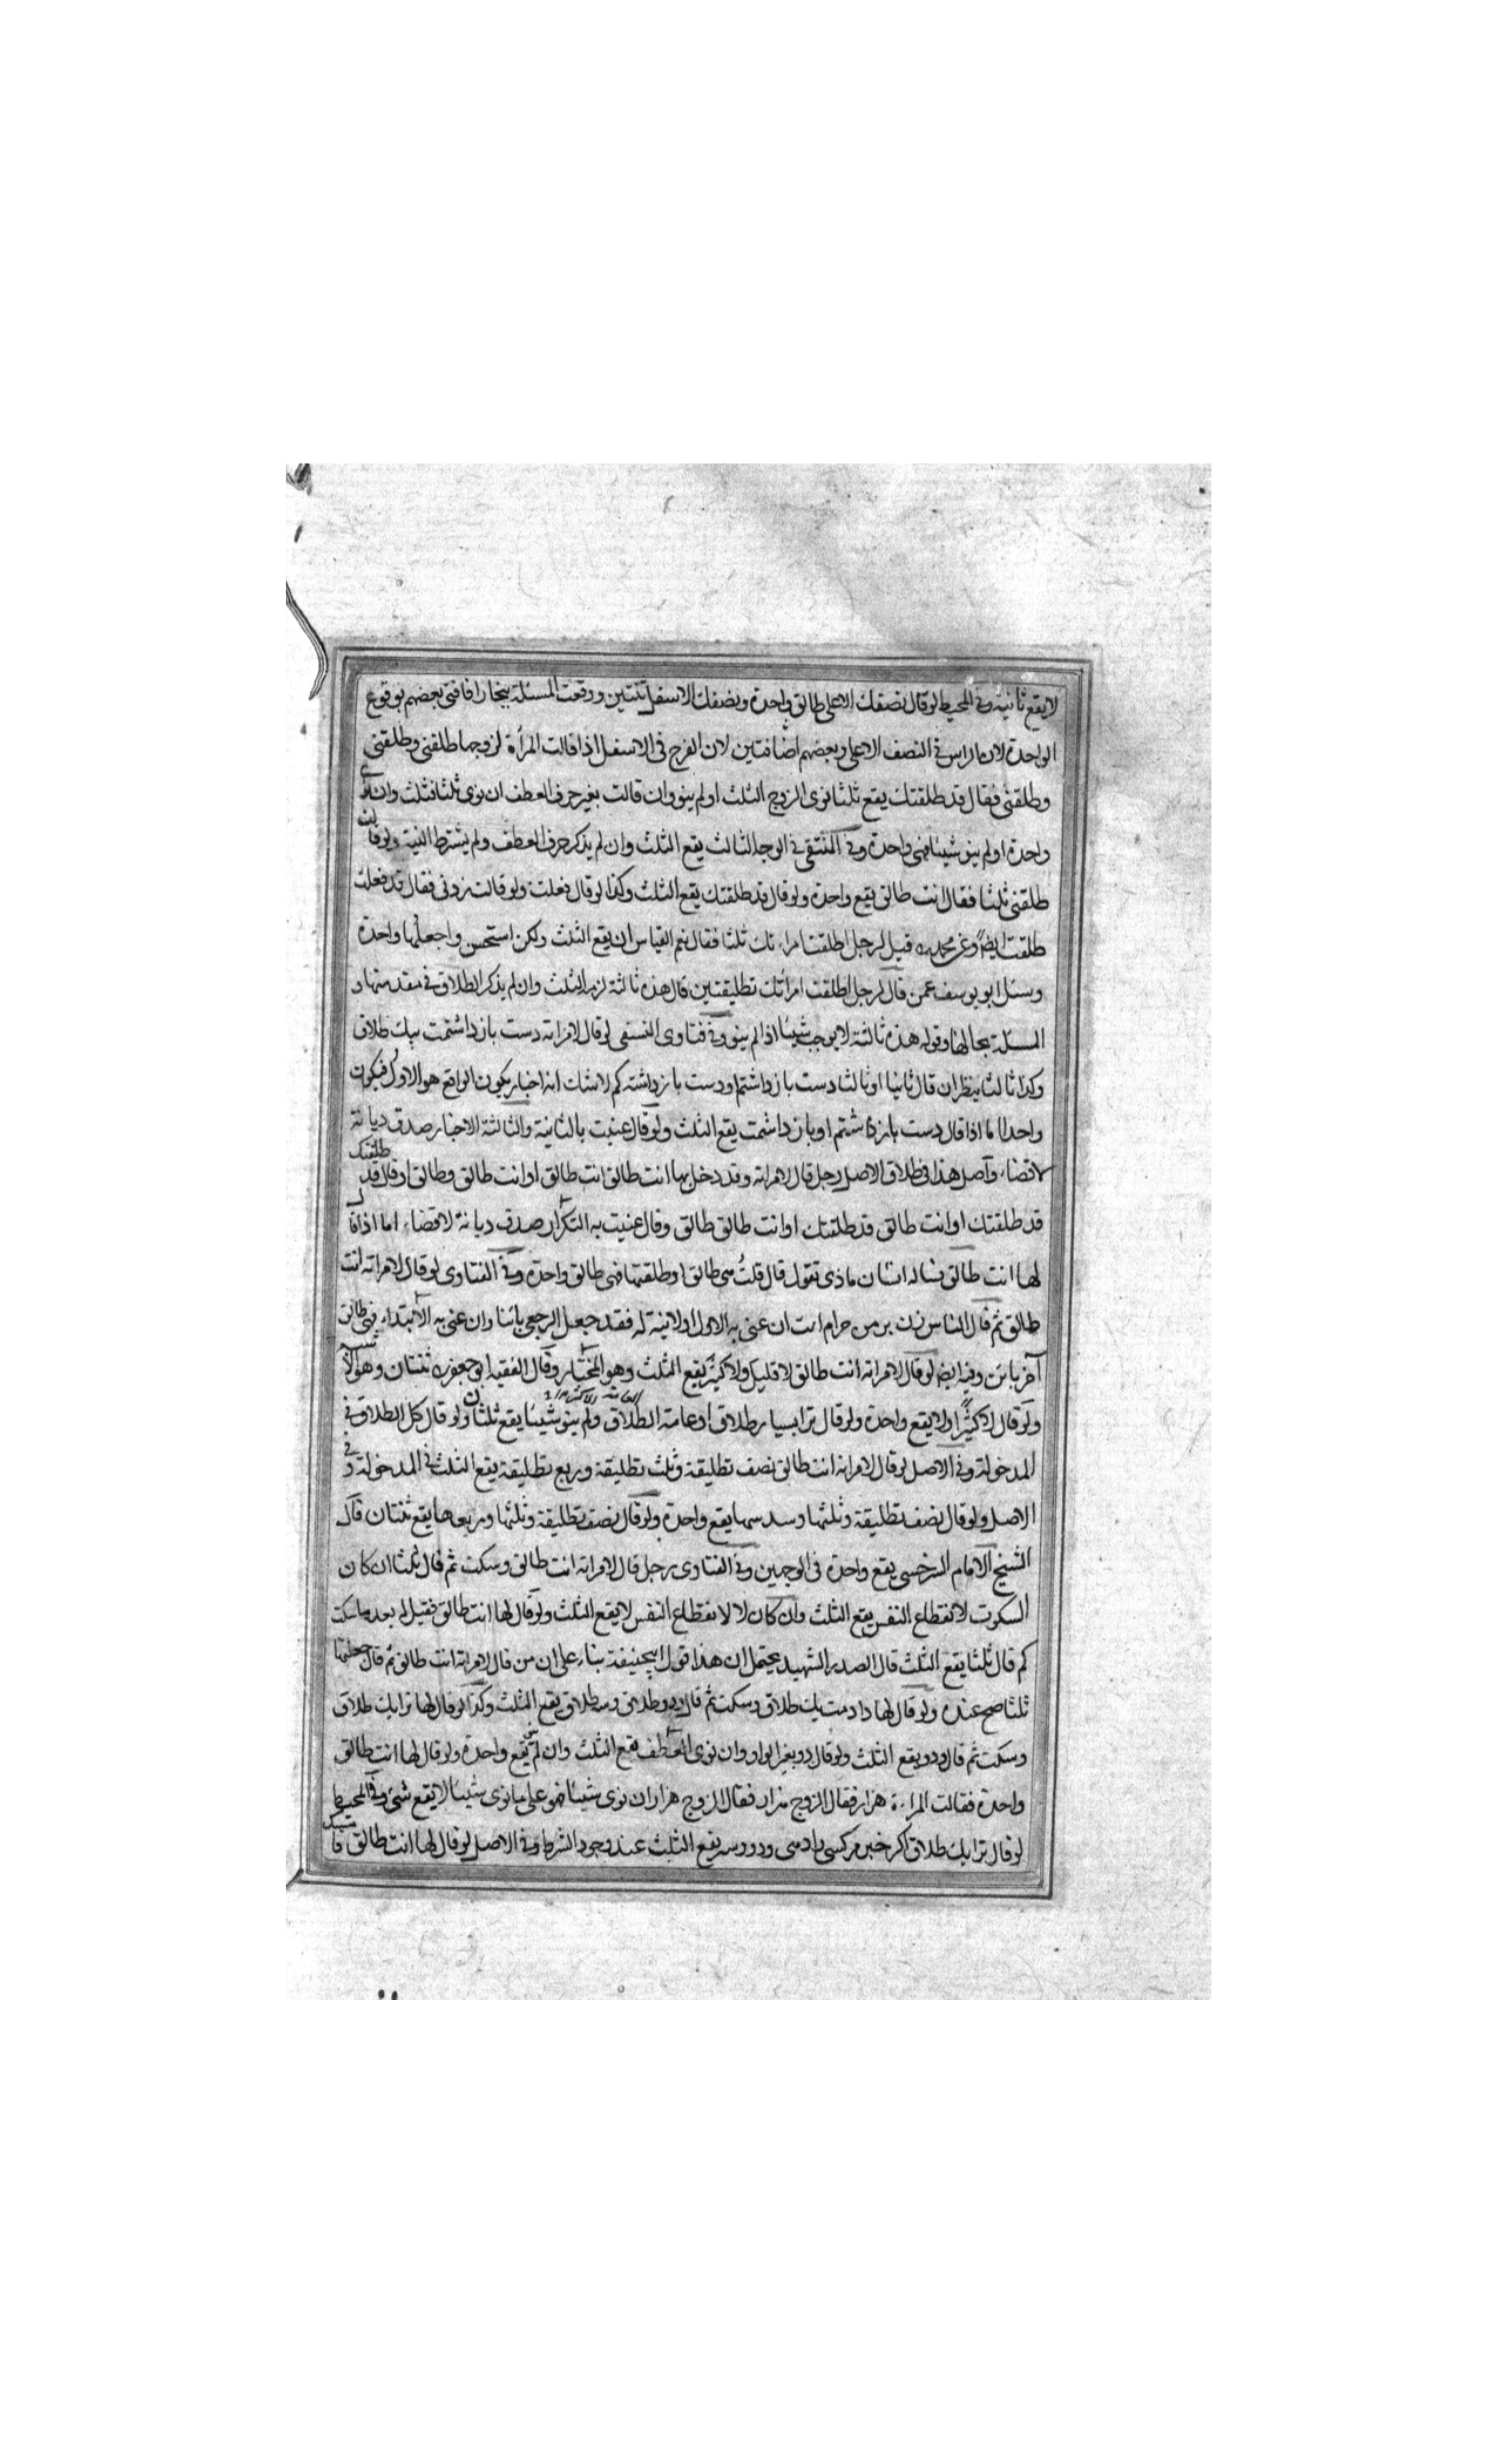 لا يقع ثانية وفي المحيط لو قال نصفك الاعلى طالق واحدة ونصفك الاسفل ثنتين ووقعت المسئلة ببخارا فافتى بعضهم بوقوع
الواحدة لان الراس في النصف الاعلى وبعضهم اضافتين لان الفرج في الاسفل اذا قالت المرأة لزوجها طلقني وطلقني
وطلقني فقال قد طلقتك يقع ثلثا نوى الزوج الثلث او لم ينو وان قالت بغير حرف العطف ان نوى ثلثا فثلث وان نوى
واحدة او لم ينو شيئا فهي واحدة وفي المنتقى في الوجه الثالث يقع الثلث وان لم يذكر حرف العطف ولم يشترط النية ولو قالت
طلقني ثلثا فقال انت طالق يقع واحدة ولو قال قد طلقتك يقع الثلث وكذا لو قال فعلت ولو قالت زدني فقال قد فعلت
طلقت ايضا وعن محمد ره قيل لرجل اطلقت امراتك ثلثا فقال نعم القياس ان يقع الثلث ولكن استحسن واجعلها واحدة
وسئل ابو يوسف عمن قال لرجل اطلقت امرأتك تطليقتين قال هذه ثالثة لزمه الثلث وان لم يذكر الطلاق في مقدمتها و
المسئلة بحالها وقوله هذه ثالثة لا يوجب شيئا اذا لم ينو وفي فتاوى النسفي لو قال لامراته دست باز داشتمت بيك طلاق
وكذا ثالثا ينظر ان قال ثانيا او ثالثا دست باز داشتم او دست باز داشته كم لا شك انه اخبار يكون الواقع هو الاول فيكون
واحدا اما اذا قال دست باز داشتم او باز داشمت يقع الثلث ولو قال عنيت بالثانية والثالثة الاخبار صدق ديانة
لا قضاء وأصل هذا في طلاق الاصل رجل قال لامراته وقد دخل بها انت طالق انت طالق او انت طالق وطالق او قال قد طلقتك
قد طلقتك او انت طالق قد طلقتك او انت طالق طالق وقال عنيت به التكرار صدق ديانة لا قضاء اما اذا قال
لها انت طالق فساله انسان ماذى تقول قال قلت هي طالق او طلقتها فهي طالق واحدة وفي الفتاوى لو قال لامراته انت
طالق ثم قال للناس زن بر من حرام است ان عنى به الاول او لا نية له فقد جعل الرجعي بائنا وان عنى به الابتداء فهي طالق
آخر بائن وفيه ايضا لو قال لامراته انت طالق لا قليل ولا كثير يقع الثلث وهو المختار وقال الفقيه ابو جعفر ره ثنتان وهو الاشبه
ولو قال لا كثيرا ولا يقع واحدة ولو قال ترا بسيار طلاق او عامة الطلاق ولم ينو شيئا يقع ثلثان ولو قال كل الطلاق في
المدخولة وفي الاصل لو قال لامراته انت طالق نصف تطليقة وثلث تطليقة وربع تطليقة يقع الثلث في المدخولة وفي
الاصل ولو قال نصف تطليقة وثلثها وسدسها يقع واحدة ولو قال نصف تطليقة وثلثها وربعها يقع ثنتان قال
الشيخ الامام السرخسي يقع واحدة في الوجهين وفي الفتاوى رجل قال لامراته انت طالق وسكت ثم قال ثلثا ان كان
السكوت لانقطاع النفس يقع الثلث وان كان لا لانقطاع النفس لا يقع الثلث ولو قال لها انت طالق فقيل له بعد ما سكت
كم قال ثلثا يقع الثلث قال الصدر الشهيد يحتمل ان هذا قول ابيحنيفة بناء على ان من قال لامراته انت طالق ثم قال جعلتها
ثلثا صح عنده ولو قال لها دادمت يك طلاق وسكت ثم قال ودو طلاق وسه طلاق يقع الثلث وكذا لو قال لها ترا يك طلاق
وسكت ثم قال ودو يقع الثلث ولو قال دو بغير الواو وان نوى العطف يقع الثلث وان لم ينو يقع واحدة ولو قال لها انت طالق
واحدة فقالت المراءة هزار فقال الزوج هزار فقال الزوج هزار ان نوى شيئا فهو على ما نوى شيئا لا يقع شئ وفي المحيط
لو قال ترا يك طلاق اكر خبر مر كسى را دهى ودو وسه يقع الثلث عند وجود الشرط وفي الاصل لو قال لها انت طالق